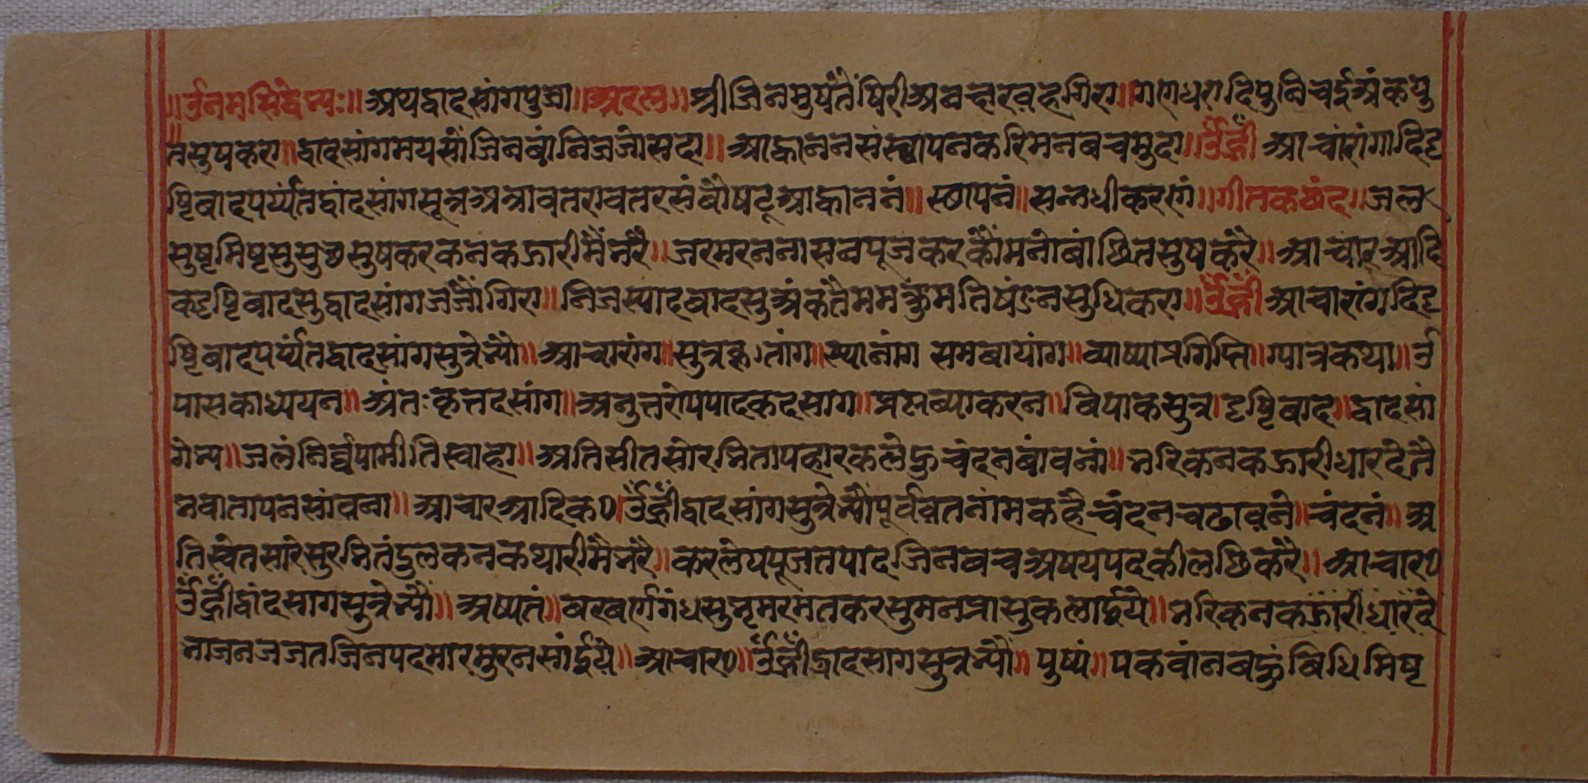 ॥र्उनमसिद्धेभ्यः॥ अथद्वादसांगपुजा॥ अरल॥ श्रीजिनमुषतैंषिरी गिरा॥ गणधरादिपुनि
तसुषकरा॥ द्वादसांगमयसौंजिनबांनिजजौंसदा॥ आह्वाननसंस्थापनकरिमनबचमुदा॥ र्उँह्रीँ आचांरांगादिदृ
ष्टिबादपर्य्यंतद्वांदसांगसूत्रअत्रावतरावतरसंबौषट्आह्वाननं॥ स्थापनं॥ सन्नधीकरणं॥ गीतकछंद॥ जल
सुषकरकनकऊारीमैंभरैं॥ जरमरननासनपूजकरकौंमनोबांछितसुषकरैं॥ आचारआदि
कदृष्टिबादसुद्वादसांगजजौंगिरा॥ निजस्याद्वादसुअंकतैमम र्उँह्रीँआचारांगदिदृ
ष्टिबादपर्य्यंतद्वादसांगसुत्रेभ्यो॥ आचारांग॥ सुत्रकृतांग॥ स्थानांग समबायांग॥ व्याष्याप्रगिप्ति॥ ग्यात्रकथा॥ र्उ
पासकाध्ययन॥ अंतःकृत्तदसांग॥ अनुत्तरोपपादकदसांग॥ प्रस्नव्याकरन॥ बिपाकसुत्र॥ दृष्टिबाद॥ द्वादसां
गेभ्य॥ जलंनिर्व्वपामीतिस्वाहा॥ अतिसीतसोरभितापहारकलेहुचंदनबांवनां॥ भरिकनकऊारीधारदेतैं
भवातापनसांवना॥ आचारआदिक० र्उँह्रीँद्वादसांगसुत्रेभ्योपूर्वव्रतनांमकहैचंदनचढाव्रनें॥ चंदनं॥ अ
तिस्वेतसारेसुरभितंदुलकनकथारीमैभरैं॥ करलेयपूजतपादजिनबचअषयपदकी आचार०
र्उँह्रीँद्वांदसांगसुत्रेभ्यो॥ अष्यतं॥ बरबर्णगंध भरिकनकऊारीधारदे
जिनपद आचार०॥ र्उँह्रीँद्वादसांगसुत्रभ्यौ॥ पुष्पं॥ पकवांनबहुबिधिमिष्ट